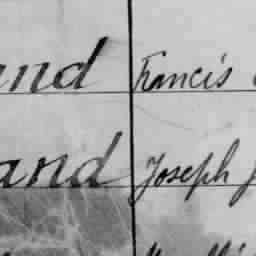 and Francis
and Joseph